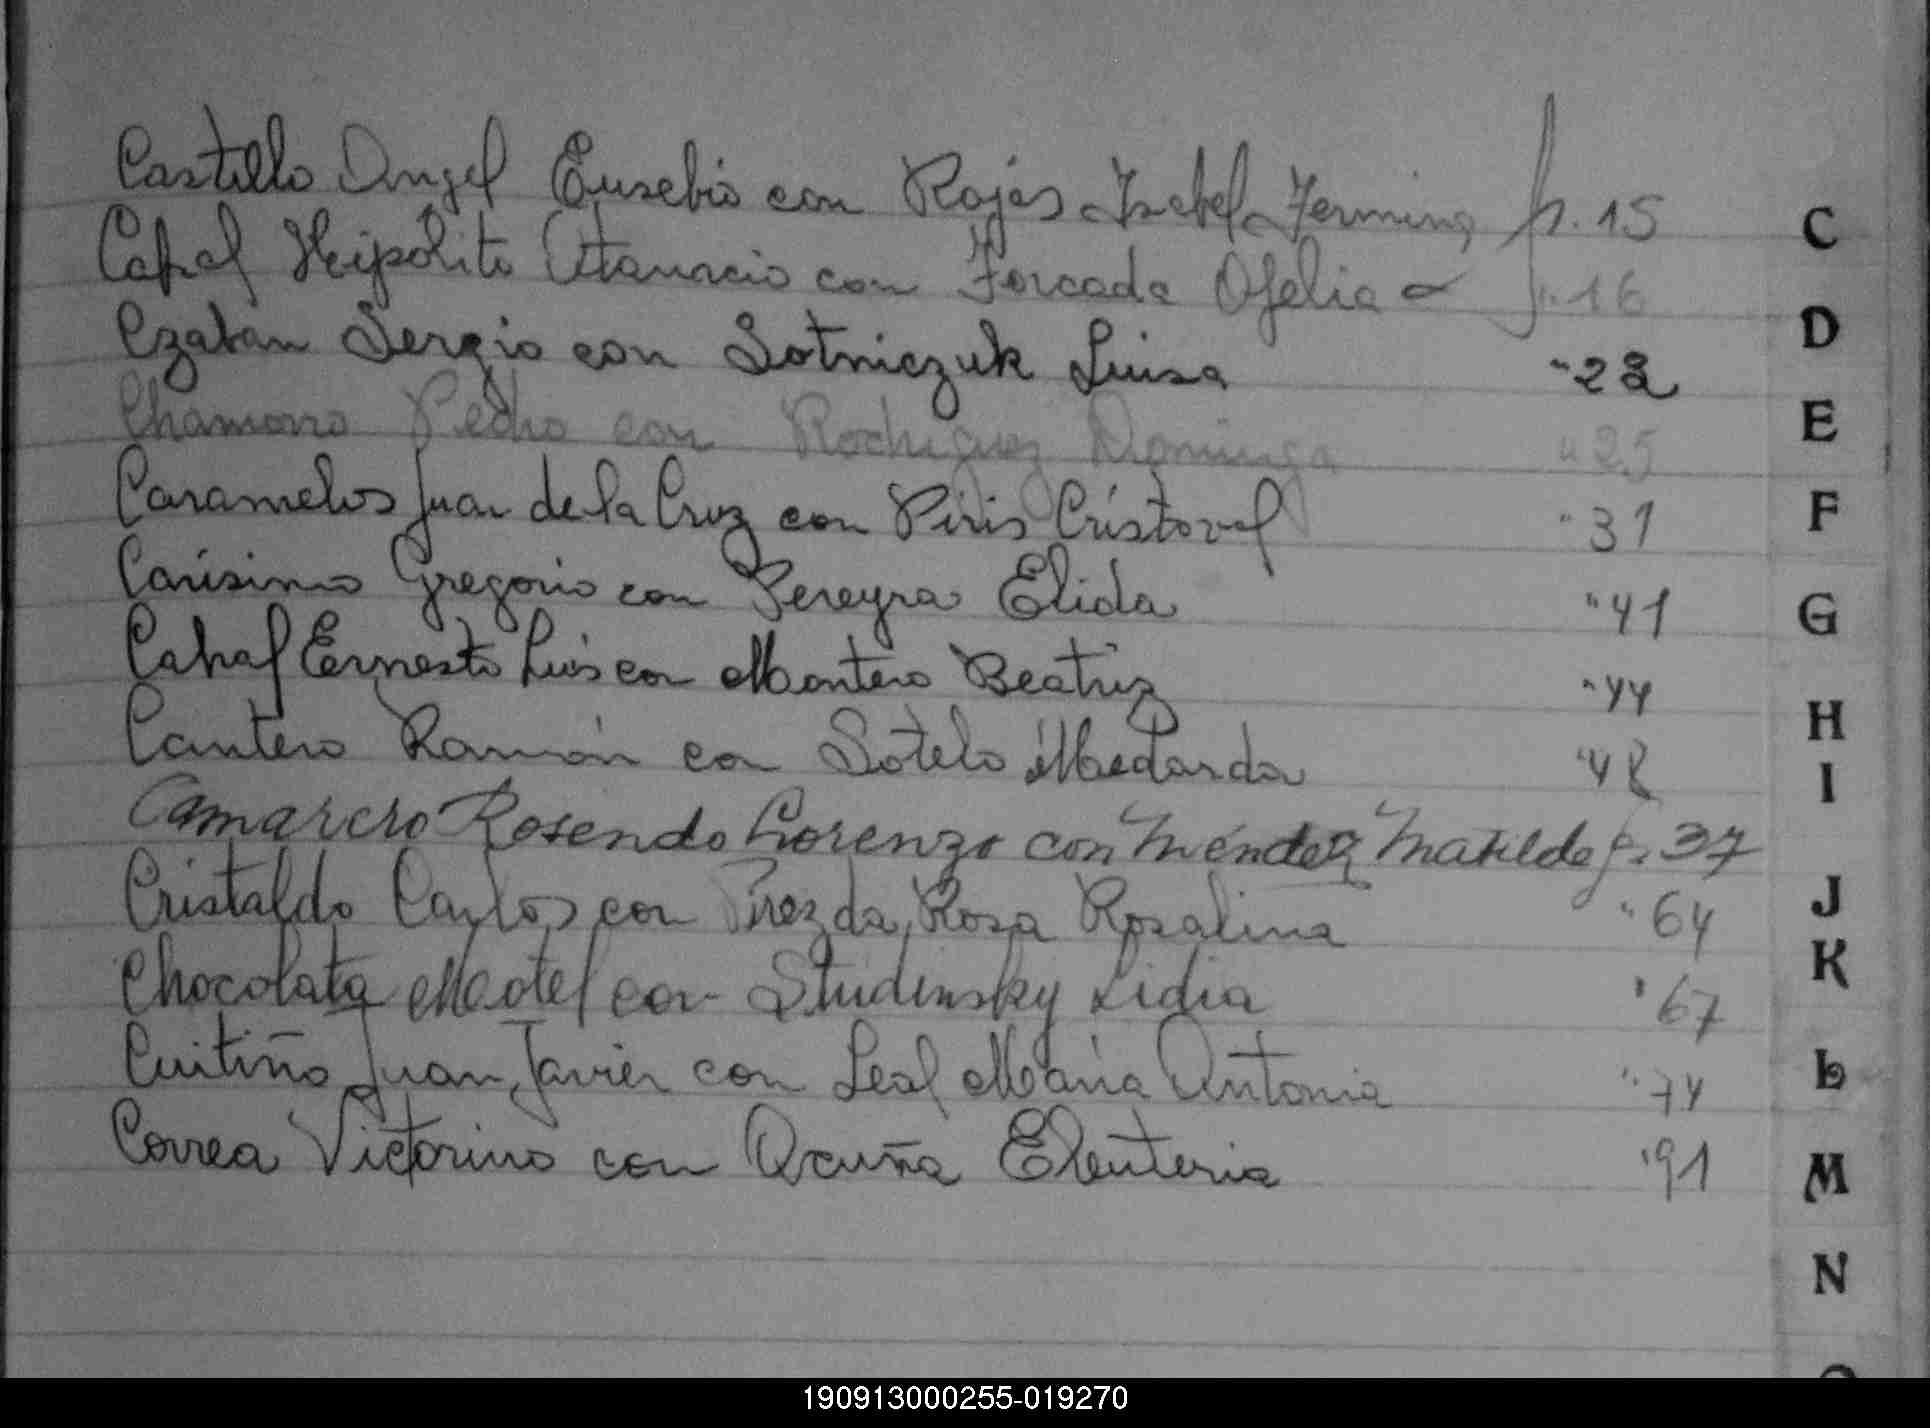 Castillo Angel Eusebio con Rojas Isabel Fermina p. 15
Cabral Hipolito Atanacio con Forcada Ofelia p. 16
Czaban Sergio con Sotniczuk Luisa " 22
Chamorro Pedro con Rodriguez Dominga " 25
Caramelos Juan de la Cruz con Piris Cristoval " 31
Carísimo Gregorio con Pereyra Elida " 41
Cabral Ernesto Luis con Montero Beatriz " 44
Cantero Ramón con Sotelo Medarda " 48
Camarero Rosendo Lorenzo con Méndez Matilde p. 37
Cristaldo Carlos con Pirez da Rosa Rosalina " 64
Chocolata Motel con Studinsky Lidia " 67
Cuitiño Juan Javier con Leal María Antonia " 74
Correa Victorino con Acuña Eleuteria " 91
C
D
E
F
G
H
I
J
K
L
M
N
190913000255-019270